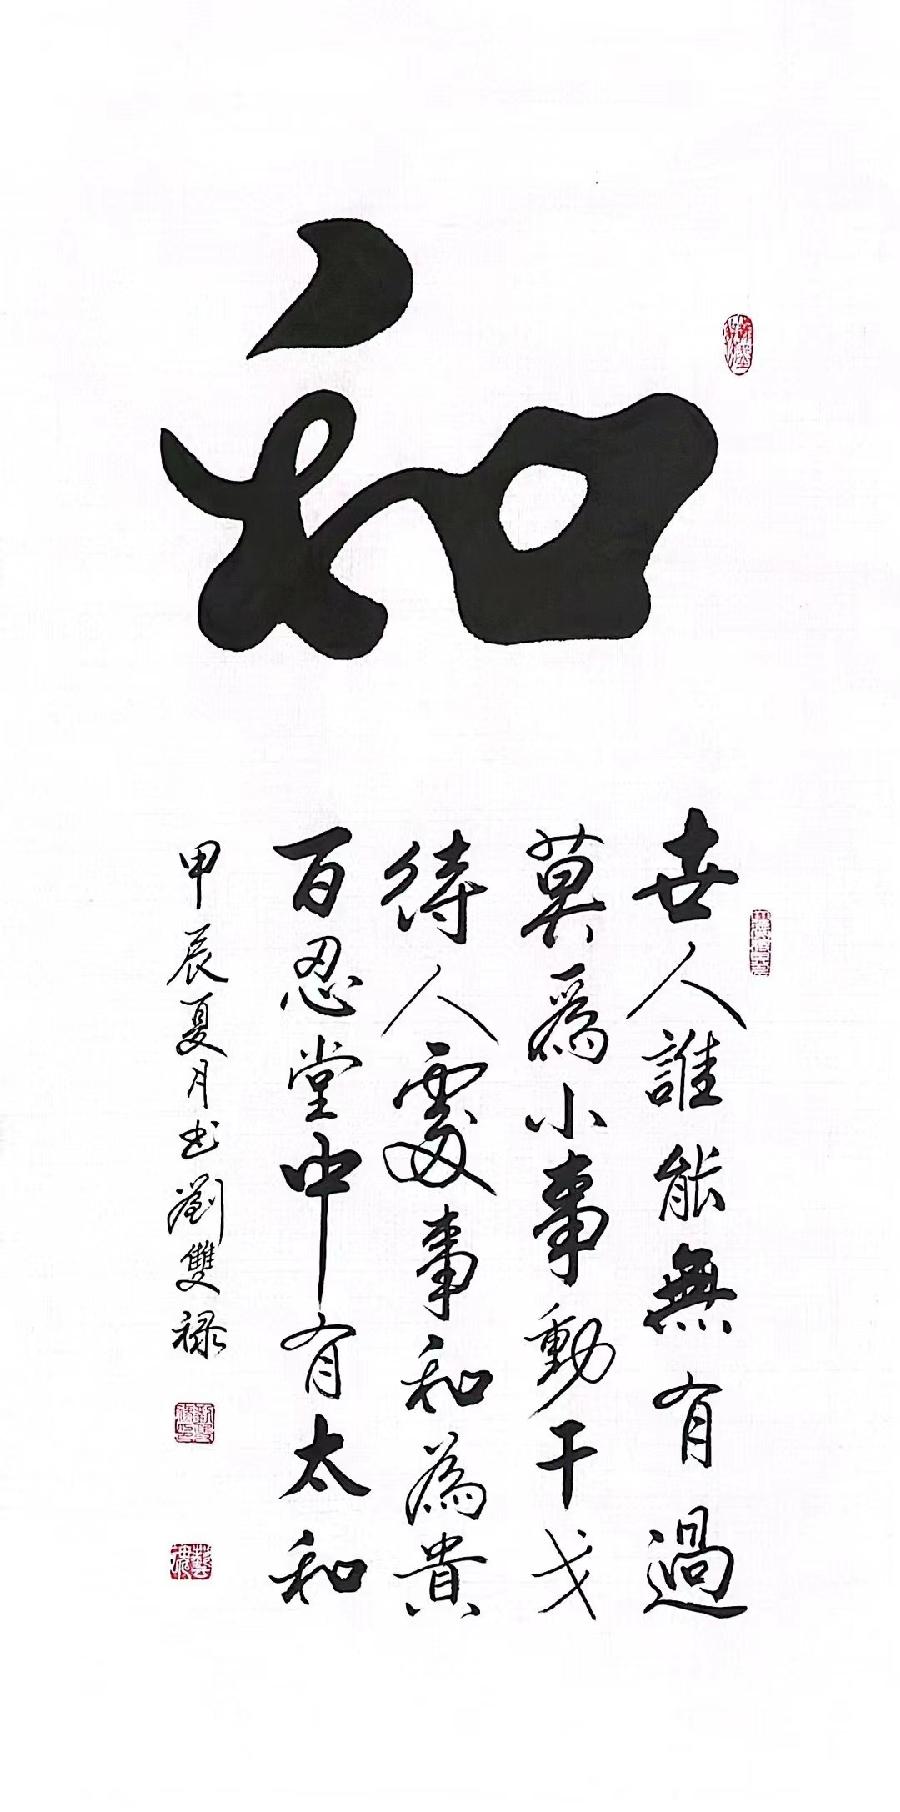 和
世人誰能無有過
莫爲小事動干戈
待人處事和為貴
百忍堂中有太和
甲辰夏月书劉雙禄